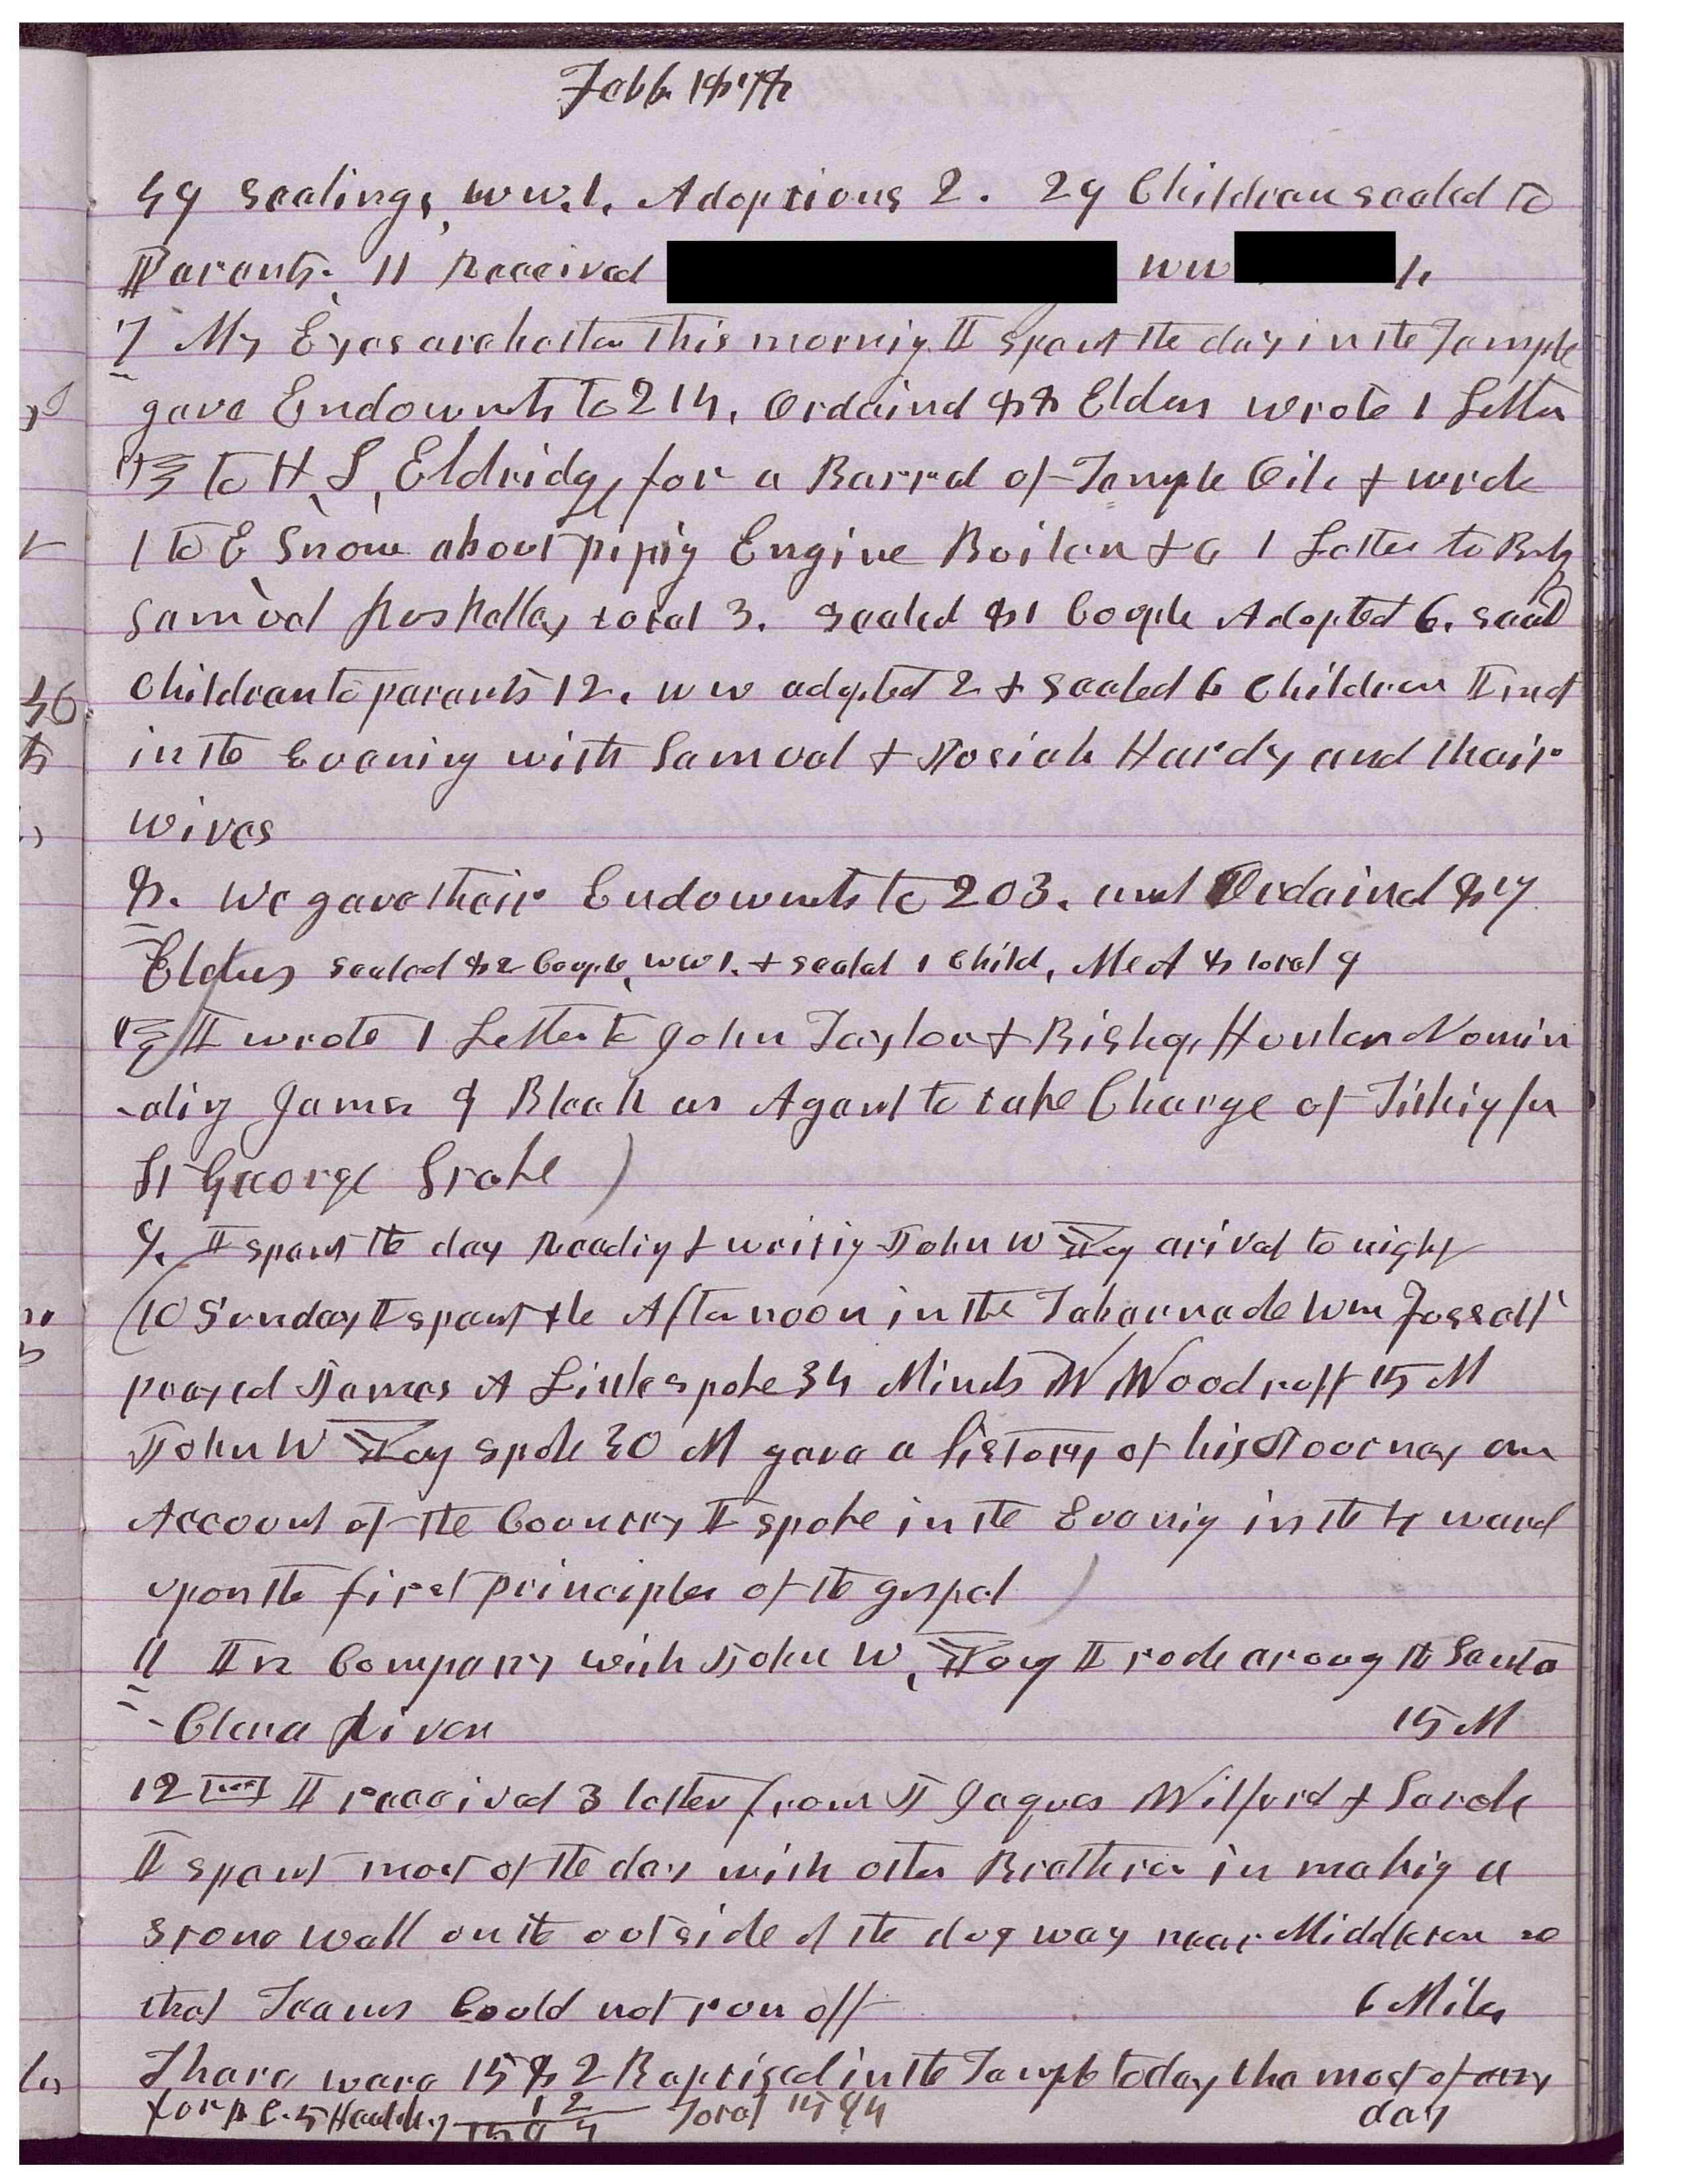 Feb 6. 1878
49 sealings, W W. 1. Adoptions 2. 29 Children sealed to
Parents. 11 Received W W 1.
7 My Eyes are better this morning I spent the day in the Temple
gave Endowmts to 214, Ordaind 88 Elders wrote 1 Letter
to H. S. Eldridg, for a Barrel of Temple Oil & wrote
1 to E Snow about piping Engine Boiler & 1 Letter to
Samuel total 3. Sealed 81 Couple Adopted 6. seald
Children to parents 12. W W adopted 2 & Sealed 6 Children I met
in the Evening with Samuel & Josiah Hardy and thair
wives
8. We gave their Endowmts to 203. and Ordaind 87
Elders sealed 82 Couple, W W 1. & sealed 1 Child, 8 total 9
I wrote 1 Letter to John Taylor & Bishop Hunter Nomin
-ating James G Bleak as Agent to take Charge of Tithing for
St George Stake
9. I spent the day Reading & writing John W Young arived to night
10 Sunday I spent the Afternoon in the Tabernacle Wm Fossett
prayed James A Little spoke 34 Minuts W Woodruff 15 M
John W Young spoke 30 M gave a history of his Journey an
Account of the Country I spoke in the Evening in the 4 ward
upon the first principles of the gospel
11 In Company with John W, Young I rode around the Santa
- Clara River 15 M
12 I received 3 letters from J Jaques Wilford & Sarah
I spent most of the day with other Brethren in making a
stone wall on the outside of the dug way near Middleton so
that Teams Could not run off 6 Miles
There ware 1582 Baptised in the Temple today the most of any
for 5 Health 12 Total 1594 day